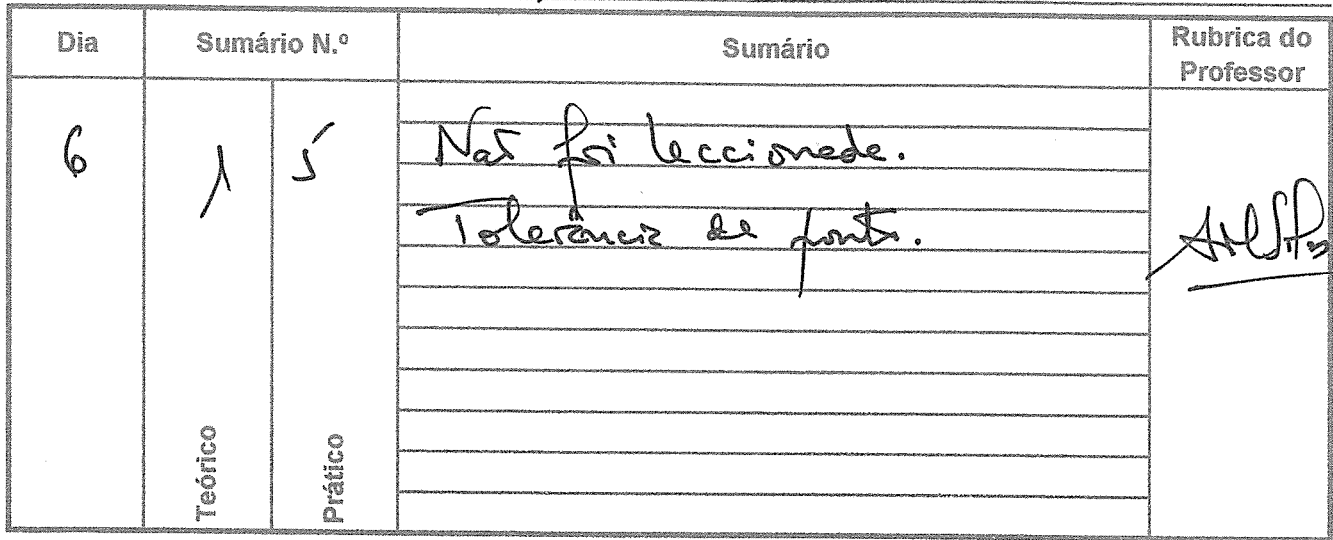 Dia Sumário N.º Sumário Rubrica do Professor
6 1 5 Não foi leccionada.
Tolerância de ponto.
Teórico Prático